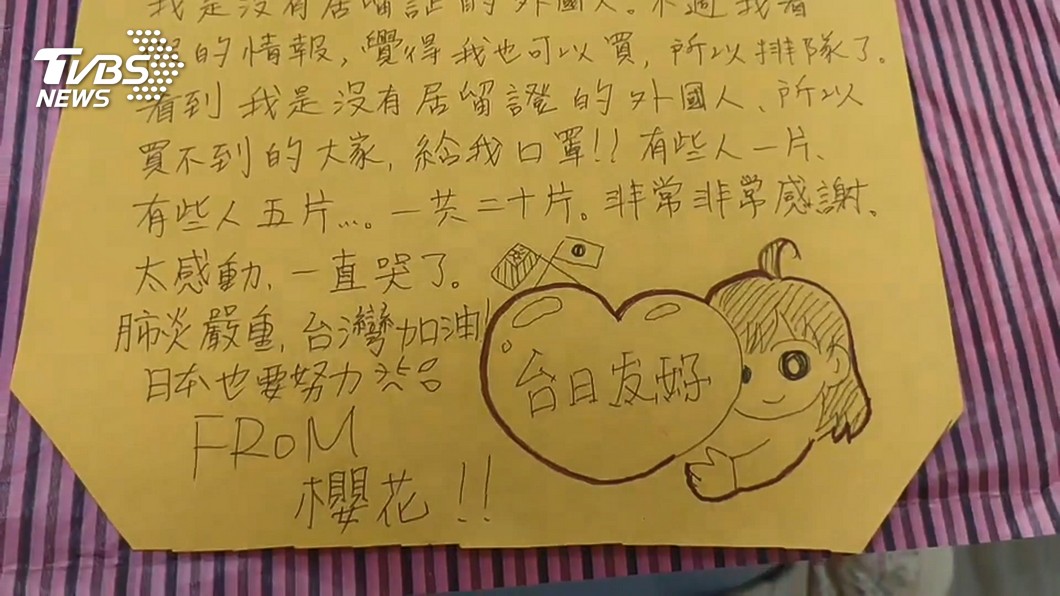 TVBS
NEWS
我是沒有居留証的外國人。不過我看
的情報,覺得我也可以買,所以排隊了。
看到我是沒有居留證的外國人、所以
買不到的大家,給我口罩!!有些人一片、
有些人五片...。一共二十片。非常非常感謝。
太感動、一直哭了。
肺炎嚴重,台灣加油!
日本也要努力
FROM
櫻花!!
台日友好